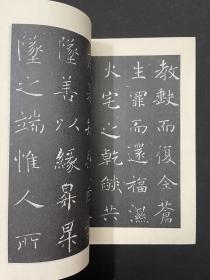 教缺而復全蒼
生罪而還福濕
火宅之乾燄共
墜善以緣昇昇
墜之端惟人所